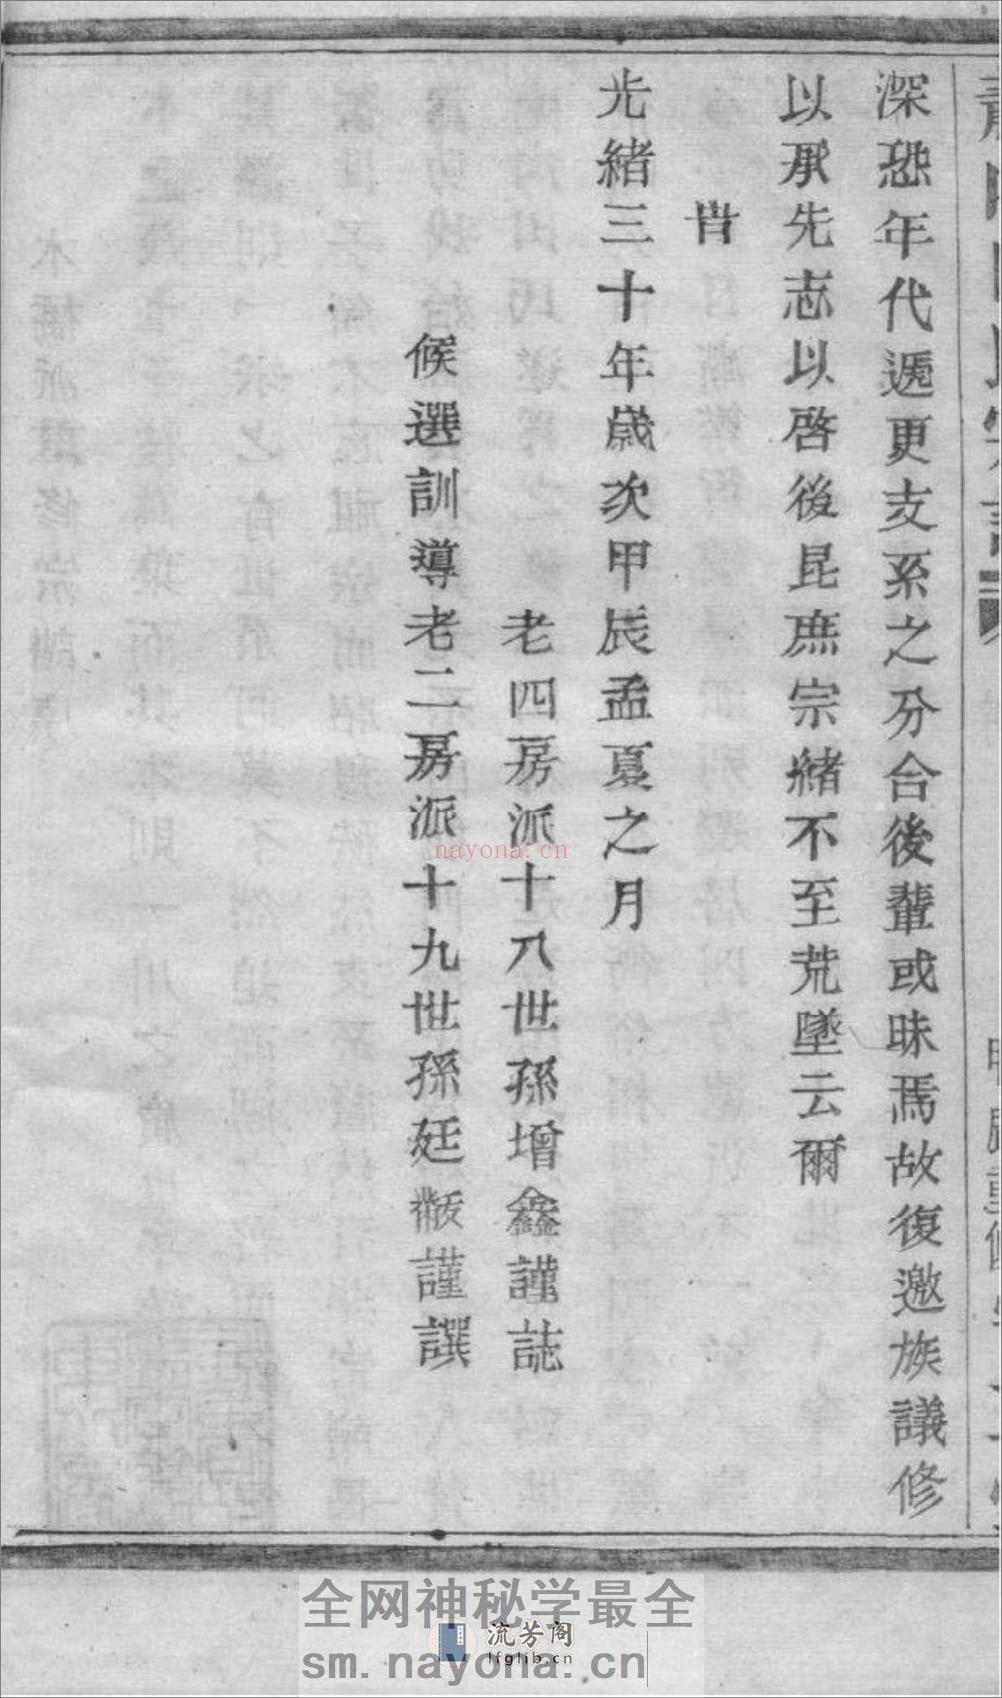 深恐年代遞更支系之分合後輩或昧焉故復邀族議修
以承先志以啓後昆庶宗緒不至荒墜云爾
旹
光緒三十年歲次甲辰孟夏之月
老四房派十八世孫增鑫謹誌
候選訓導老二房派十九世孫廷黻謹譔
nayona.cn
全网神秘学最全
流芳阁
lfglib.cn
sm.nayona.cn